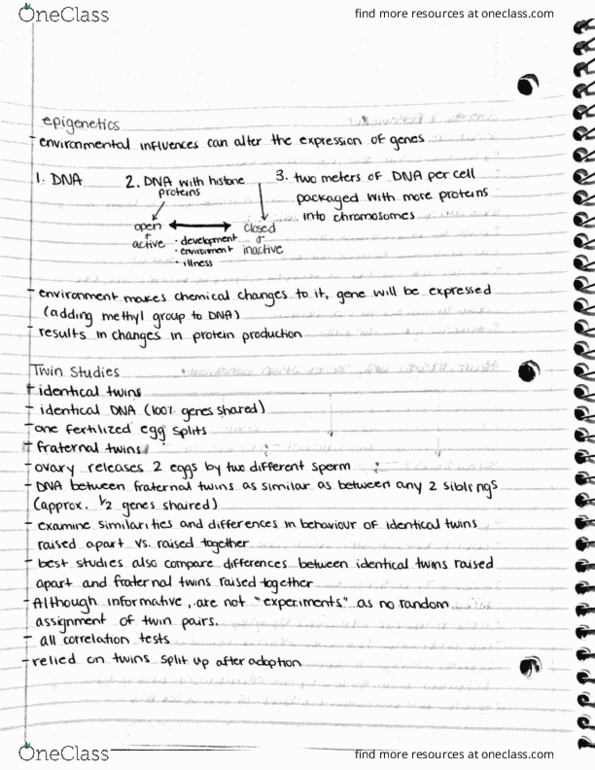 OneClass
find more resources at oneclass.com
epigenetics
- environmental influences can alter the expression of genes
1. DNA
2. DNA with histone proteins
3. two meters of DNA per cell
packaged with more proteins
into chromosomes
open + active
closed + inactive
• development
• environment
• illness
- environment makes chemical changes to it, gene will be expressed
(adding methyl group to DNA)
- results in changes in protein production
Twin Studies
- identical twins
- identical DNA (100% genes shared)
- one fertilized egg splits
- fraternal twins
- ovary releases 2 eggs by two different sperm
- DNA between fraternal twins as similar as between any 2 siblings
(approx. 1/2 genes shaired)
- examine similarities and differences in behaviour of identical twins
raised apart vs. raised together
- best studies also compare differences between identical twins raised
apart and fraternal twins raised together
- Although informative, are not "experiments" as no random
assignment of twin pairs.
- all correlation tests
- relied on twins split up after adoption
OneClass
find more resources at oneclass.com